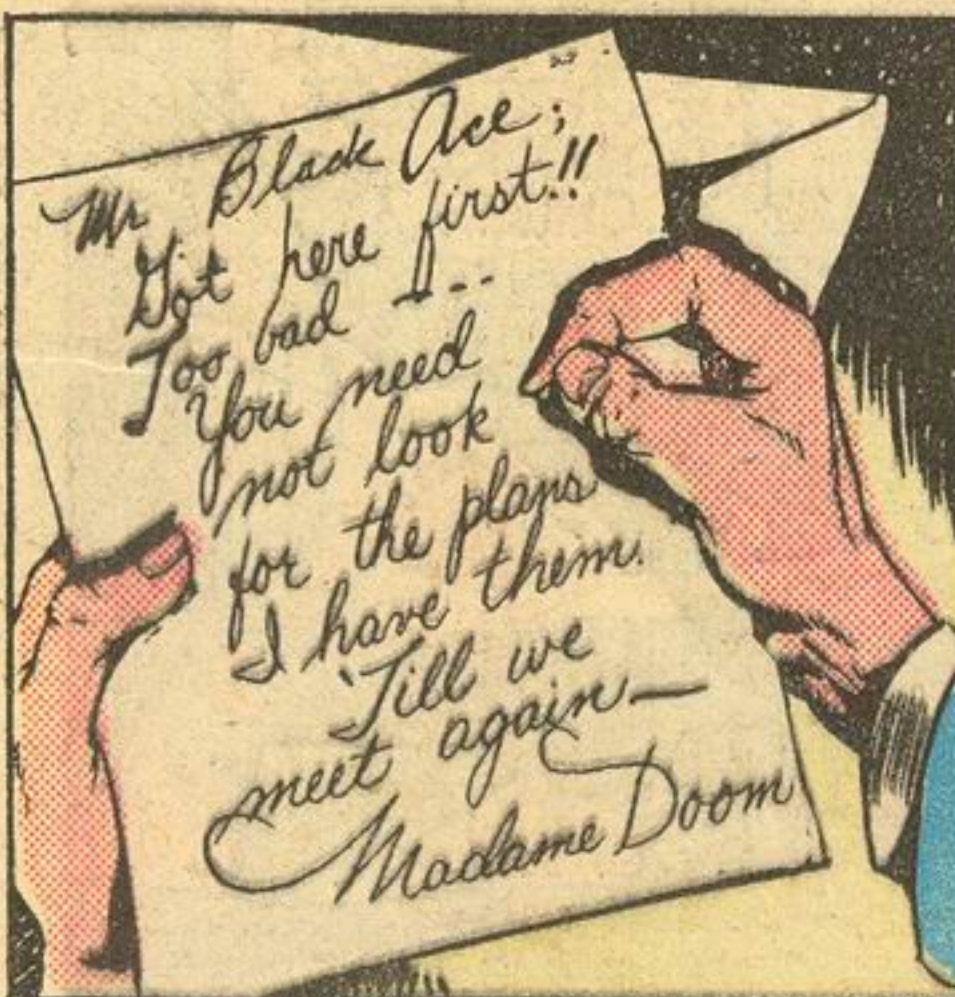 Mr Black Ace;
Got here first!!
Too bad ----
You need
not look
for the plans
I have them.
'Till we
meet again—
Madame Doom